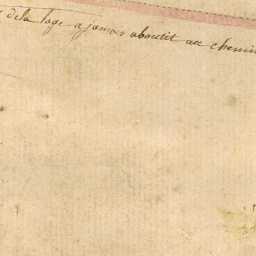 de la loge a jamais aboutit au chemin